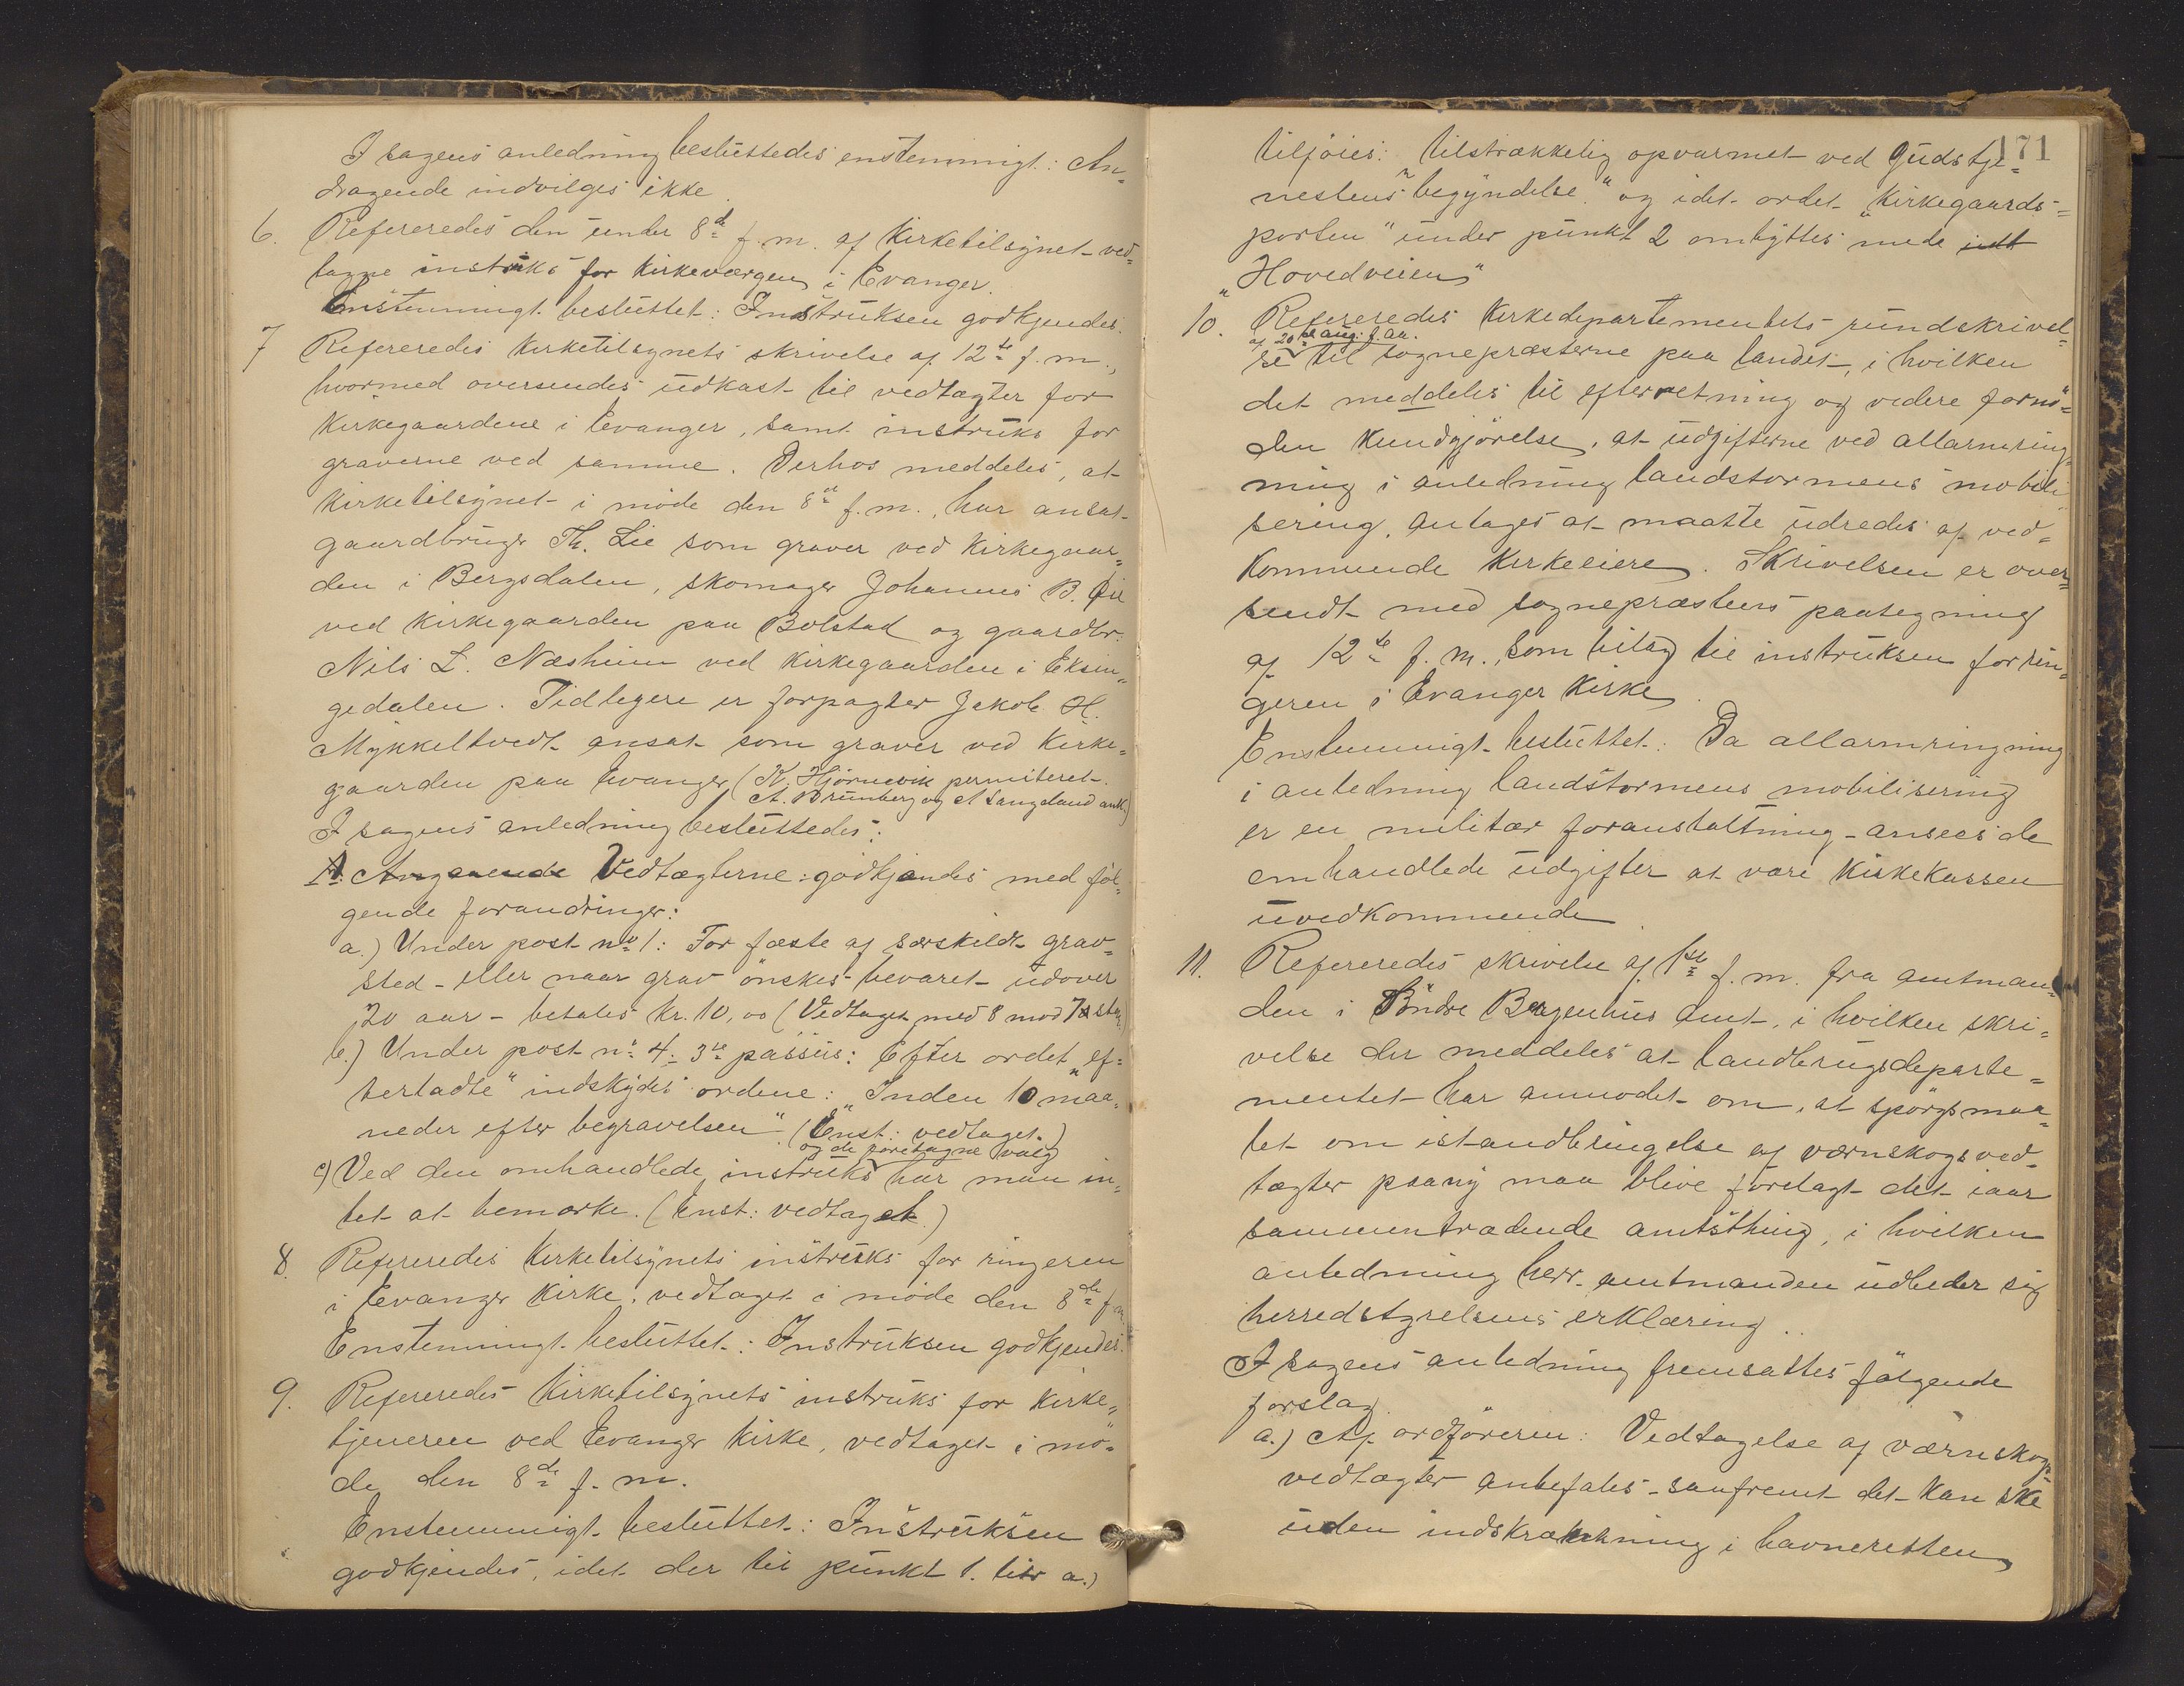 I sagens anledning besluttedes enstemmigt: An-
dragende indvilges ikke.
6. Refereredes den under 8de f. m. af Kirketilsynet ved-
tagne instruks for Kirkeværgen i Evanger.
Enstemmigt besluttet: Instruksen godkjendes.
7 Refereredes Kirketilsynets skrivelse af 12te f. m.,
hvormed oversendes udkast til vedtægter for
Kirkegaardene i Evanger, samt instruks for
graverne ved samme. Derhos meddeles, at
Kirketilsynet i møde den 8de f. m., har ansat
gaardbruger Th. Lie som graver ved Kirkegaar-
den i Bergsdalen, skomager Johannes B.
ved Kirkegaarden paa Bolstad og gaardbr.
Nils L. Næsheim ved Kirkegaarden i Eksin-
gedalen. Tidligere er forpagter Jakob H.
Mykkeltvedt ansat som graver ved Kirke-
gaarden paa Evanger (K. Hjørnevik permiteret.
A. Brunberg og A Langeland
I sagens anledning besluttedes:
A: Angaaende Vedtægterne: godkjendes med føl-
gende forandringer:
a.) Under post no 1: For fæste af særskildt grav-
sted - eller naar grav ønskes bevaret udover
20 aar - betales kr. 10,00 (Vedtaget med 8 mod 7 st.)
b.) Under post no 4. 3die passus: Efter ordet „ef-
terladte" indskydes ordene: „Inden 10 maa-
neder efter begravelsen". (Enst: vedtaget.)
og de foretagne valg
c) Ved den omhandlede instruks har man in-
tet at bemærke. (Enst: vedtaget.)
8. Refereredes Kirketilsynets instruks for ringeren
i Evanger Kirke, vedtaget i møde den 8de f. m.
Enstemmigt besluttet: Instruksen godkjendes.
9. Refereredes Kirketilsynets instruks for Kirke-
tjeneren ved Evanger Kirke, vedtaget i mø-
de den 8de f. m.
Enstemmigt besluttet: Instruksen
godkjendes, idet der til punkt 1. litr a.)
171
tilføies: „tilstrækkelig opvarmet ved Gudstje-
nestens begyndelse" og idet ordet „Kirkegaards-
porten" under punkt 2 ombyttes mede
„Hovedveien"
10. Refereredes Kirkedepartementets rundskrivel-
af 20de aug. f. aa.
se til sognepræsterne paa landet, i hvilken
det meddeles til efterretning og videre fornø-
den Kundgjørelse, at udgifterne ved allarmring-
ning i anledning landstormens mobili-
sering, antages at maatte udredes af ved-
kommende Kirkeeiere. Skrivelsen er over-
sendt med sognepræstens paategning
af 12te f. m., som bilag til instruksen for rin-
geren i Evanger Kirke.
Enstemmigt besluttet: Da allarmringning
i anledning landstormens mobilisering
er en militær foranstaltning - ansees de
omhandlede udgifter at være Kirkekassen
uvedkommende
11. Refereredes skrivelse af 1ste f. m. fra amtman-
den i Søndre Bergenhus amt, i hvilken skri-
velse der meddeles at landbrugsdeparte-
mentet har anmodet om, at spørgsmaa-
let om istandbringelse af værnskogsved-
tægter paany maa blive forelagt det iaar
sammentrædende amtsthing, i hvilken
anledning herr. amtmanden udbeder sig
herredstyrelsens erklæring.
I sagens anledning fremsattes følgende
forslag.
a.) Af ordføreren: Vedtagelse af værnskogs-
vedtægter anbefales - saafremt det kan ske
uden indskrænkning i havneretten